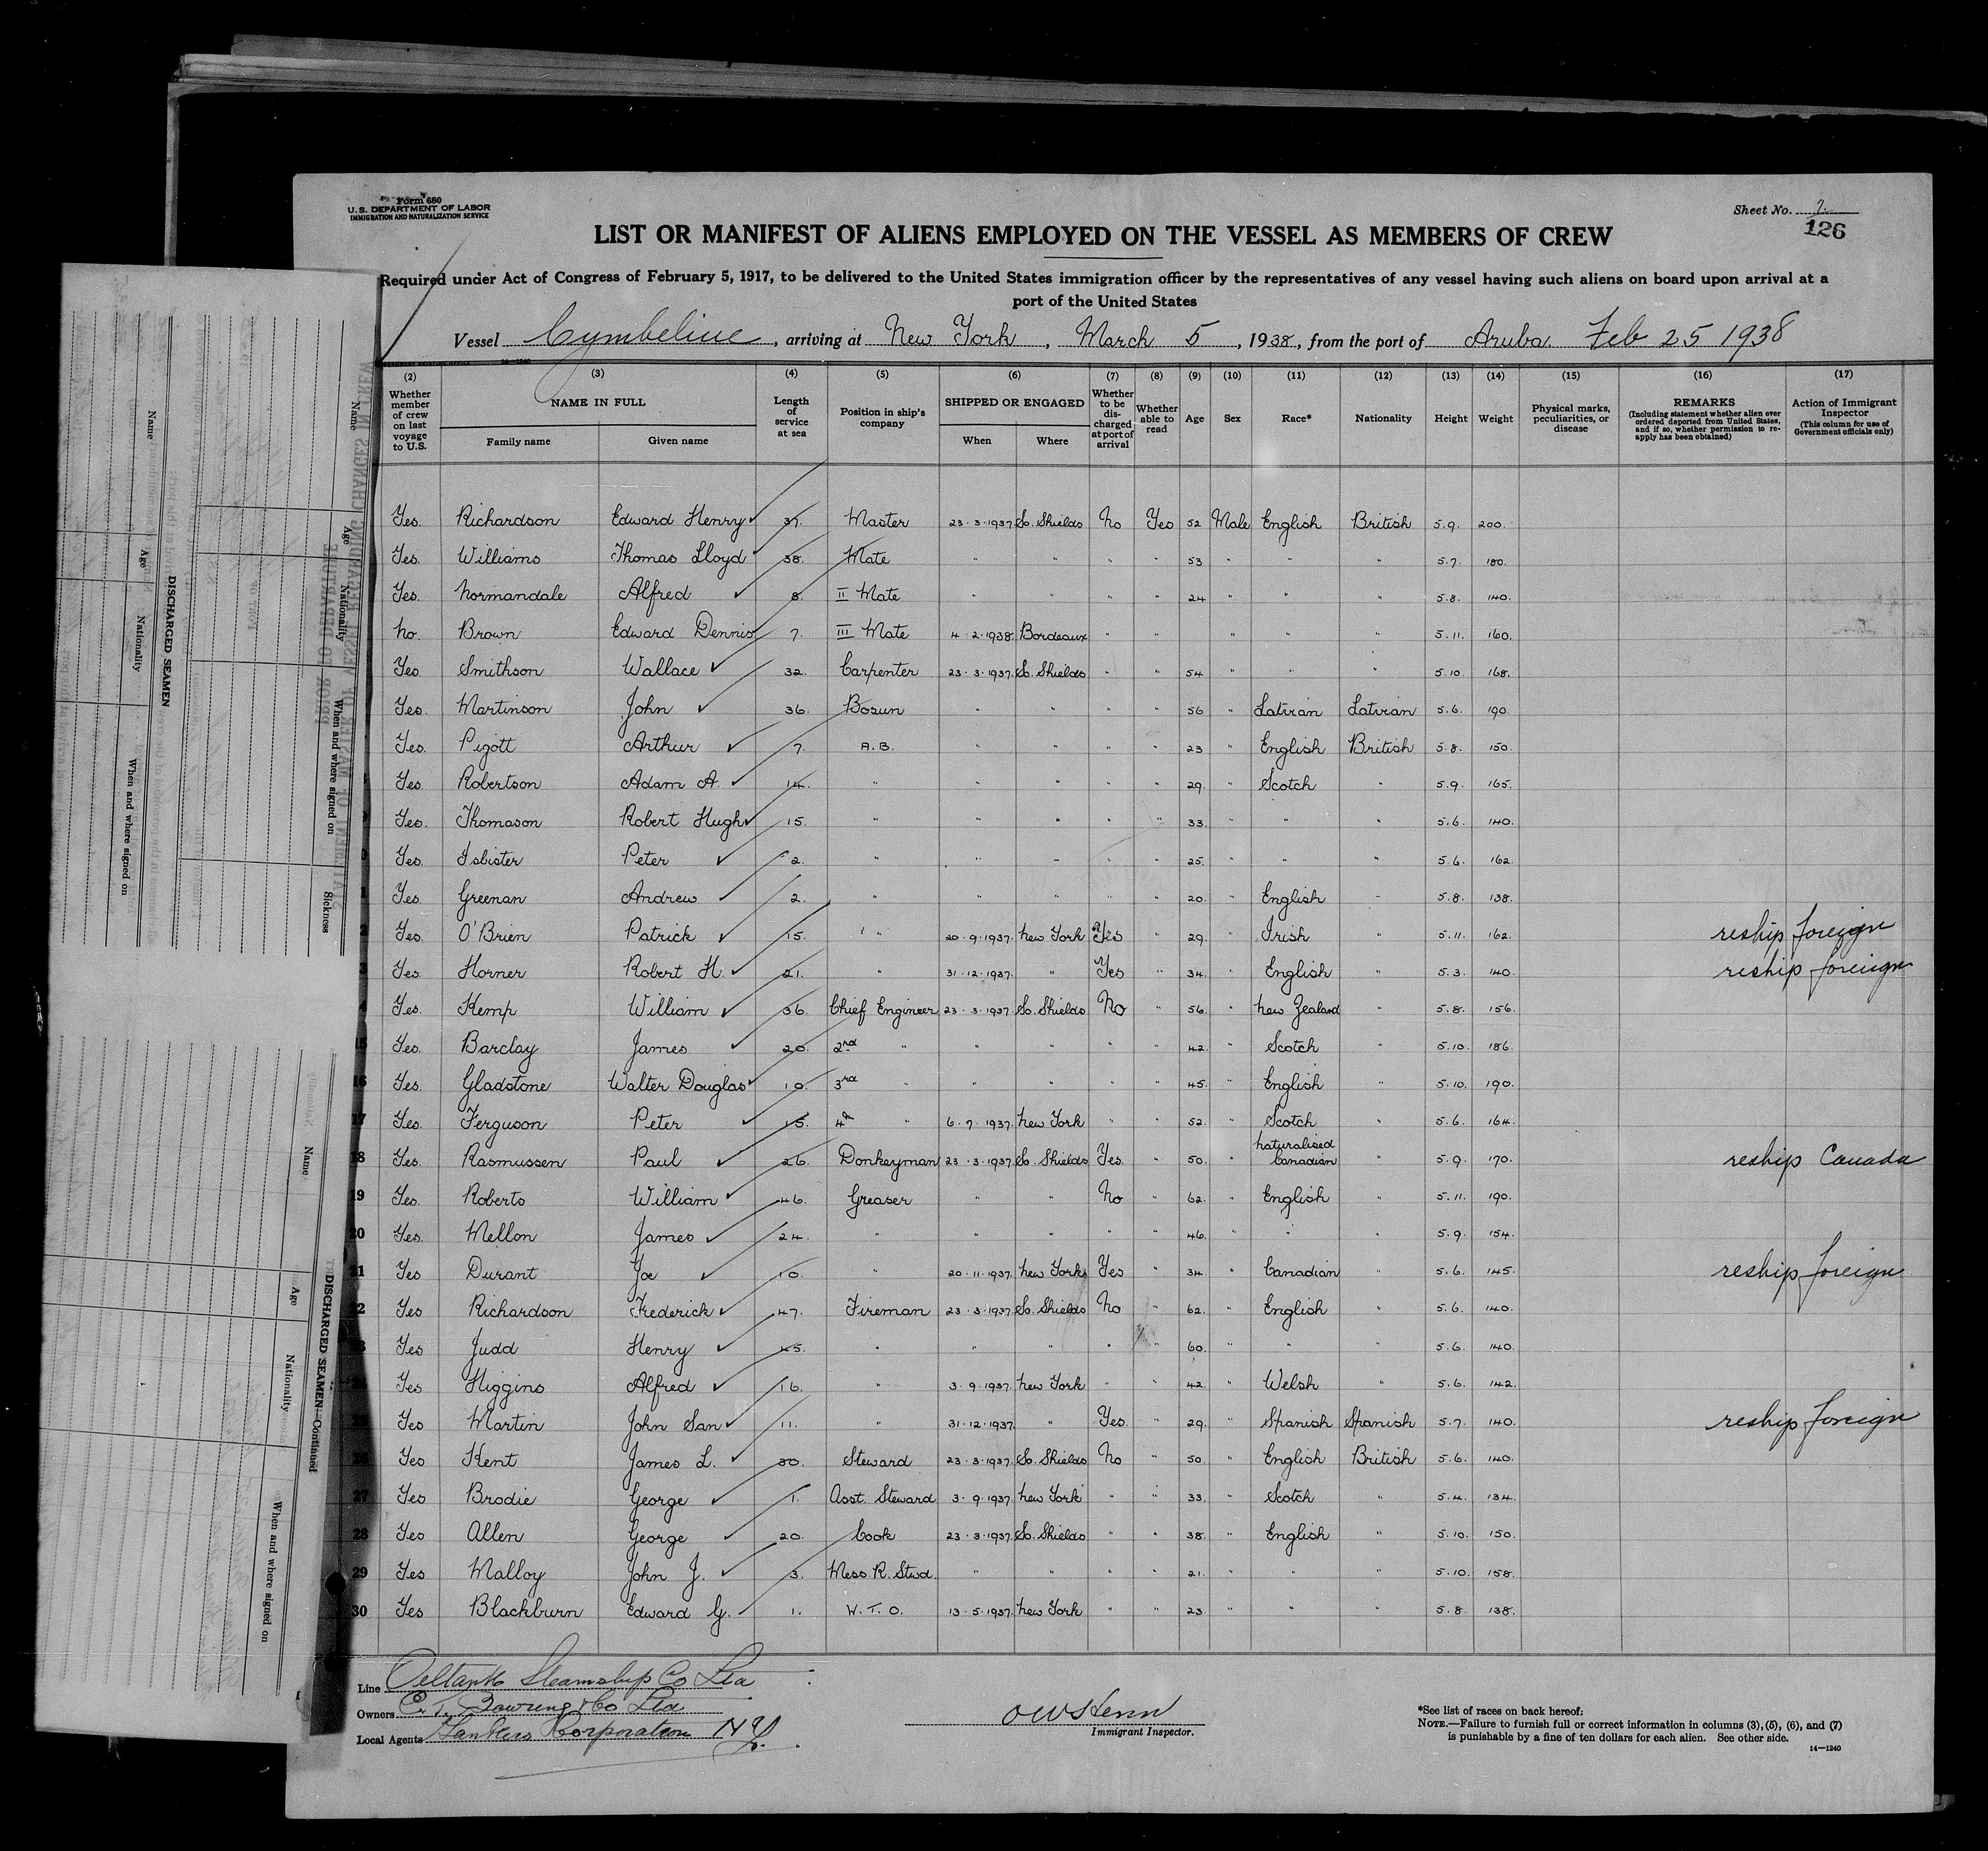 Form 680
U. S. DEPARTMENT OF LABOR
IMMIGRATION AND NATURALIZATION SERVICE
Sheet No.
126
LIST OR MANIFEST OF ALIENS EMPLOYED ON THE VESSEL AS MEMBERS OF CREW
Required under Act of Congress of February 5, 1917, to be delivered to the United States immigration officer by the representatives of any vessel having such aliens on board upon arrival at a
port of the United States
Vessel Cymbeline, arriving at New York, March 5, 1938, from the port of Aruba Feb 25 1938
(2) (3) (4) (5) (6) (7) (8) (9) (10) (11) (12) (13) (14) (15) (16) (17)
Whether member of crew on last voyage to U.S.
NAME IN FULL
Family name Given name
Length of service at sea
Position in ship's company
SHIPPED OR ENGAGED
When Where
Whether to be discharged at port of arrival
Whether able to read
Age Sex Race* Nationality Height Weight
Physical marks, peculiarities, or disease
REMARKS
(Including statement whether alien ever ordered deported from United States, and if so, whether permission to reapply has been obtained)
Action of Immigrant Inspector
(This column for use of Government officials only)
Yes. Richardson Edward Henry 37. Master 23·3·1937. So. Shields No Yes 52 Male English British 5.9. 200.
Yes. Williams Thomas Lloyd 38. Mate " " " " 53 " " " 5.7. 180.
Yes. Normandale Alfred 8. II Mate " " " " 24 " " " 5.8. 140.
No. Brown Edward Dennis 7. III Mate 4·2·1938. Bordeaux " " " " " 5.11. 160.
Yes Smithson Wallace 32. Carpenter 23·3·1937. So. Shields " " 54 " " " 5.10. 168.
Yes. Martinson John 36. Bosun " " " " 56 " Latvian Latvian 5.6. 190.
Yes. Pigott Arthur 7. A.B. " " " " 23 " English British 5.8. 150.
Yes Robertson Adam A. 14. " " " " " 29. " Scotch " 5.9. 165.
Yes. Thomason Robert Hugh 15. " " " " " 33. " " " 5.6. 140.
Yes. Isbister Peter 2. " " " " " 25. " " " 5.6. 162.
Yes. Greenan Andrew 2. " " " " " 20. " English " 5.8. 138.
Yes. O'Brien Patrick 15. " 20·9·1937. New York Yes " 29. " Irish " 5.11. 162. reship foreign
Yes. Horner Robert H. 21. " 31·12·1937. " Yes " 34. " English " 5.3. 140. reship foreign
Yes. Kemp William 36. Chief Engineer 23·3·1937. So. Shields No " 56. " New Zealand " 5.8. 156.
15 Yes. Barclay James 20. 2nd " " " " " 42. " Scotch " 5.10. 186.
16 Yes. Gladstone Walter Douglas 10. 3rd " " " " " 45. " English " 5.10. 190.
17 Yes. Ferguson Peter 15. 4th " 6·7·1937. New York " " 52. " Scotch " 5.6. 164.
18 Yes. Rasmussen Paul 26. Donkeyman 23·3·1937. So. Shields Yes. " 50. " Naturalised Canadian " 5.9. 170. reship Canada
19 Yes. Roberts William 46. Greaser " " No " 62. " English " 5.11. 190.
20 Yes. Mellon James 24. " " " " " 46. " " " 5.9. 154.
21 Yes Durant Joe 10. " 20·11·1937. New York Yes " 34. " Canadian " 5.6. 145. reship foreign
22 Yes Richardson Frederick 47. Fireman 23·3·1937. So. Shields No " 62. " English " 5.6. 140.
23 Yes Judd Henry 45. " " " " " 60. " " " 5.6. 140.
24 Yes Higgins Alfred 16. " 3·9·1937. New York " " 42. " Welsh " 5.6. 142.
25 Yes Martin John San 11. " 31·12·1937. " Yes. " 29. " Spanish Spanish 5.7. 140. reship foreign
26 Yes Kent James L. 30. Steward 23·3·1937. So. Shields No " 50. " English British 5.6. 140.
27 Yes Brodie George 1. Asst. Steward 3·9·1937. New York " " 33. " Scotch " 5.4. 134.
28 Yes Allen George 20. Cook 23·3·1937. So. Shields " " 38. " English " 5.10. 150.
29 Yes Malloy John J. 3. Mess. R. Stwd. " " " " 21. " " " 5.10. 158.
30 Yes Blackburn Edward G. 1. W.T.O. 13·5·1937. New York " " 23. " " " 5.8. 138.
Line Oeltank Steamship Co Ltd
Owners C. T. Bowring & Co Ltd
Local Agents Tankers Corporation N Y
Immigrant Inspector.
*See list of races on back hereof:
NOTE.—Failure to furnish full or correct information in columns (3), (5), (6), and (7)
is punishable by a fine of ten dollars for each alien. See other side.
14—1240
DISCHARGED SEAMEN
Name Age Nationality When and where signed on
Name Age Nationality When and where signed on Sickness
DISCHARGED SEAMEN—Continued
Name Age Nationality When and where signed on